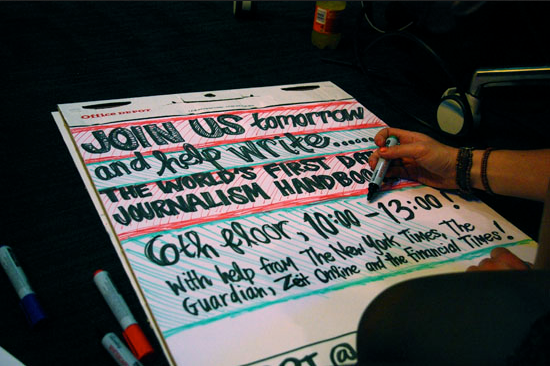 Office DEPOT
JOIN US tomorrow
and help write......
THE WORLD'S FIRST DAT
JOURNALISM HANDBOO
6th floor, 10:00 - 13:00!
With help from The New York Times, The
Guardian, Zeit Online and the Financial Times!
@